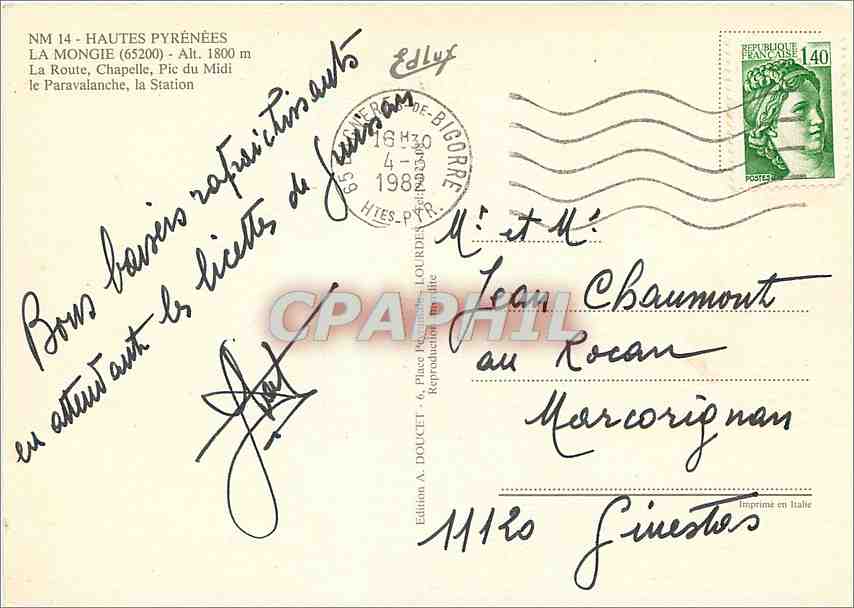 NM 14 - HAUTES PYRÉNÉES
LA MONGIE (65200) - Alt. 1800 m
La Route, Chapelle, Pic du Midi
le Paravalanche, la Station
Edlux
Bons baisers rafraichissants
en attendant les licettes de Gruissan
65 BAGNERES-DE-BIGORRE
16H30
4-
1982
HTES-PYR.
REPUBLIQUE
FRANÇAISE
1,40
POSTES
Mr et Me
Jean Chaumont
au Rocan
Marcorignan
11120 Ginestas
Edition A. DOUCET - 6, Place Peyramale - LOURDES
Reproduction interdite
Imprimé en Italie
CPAPHIL